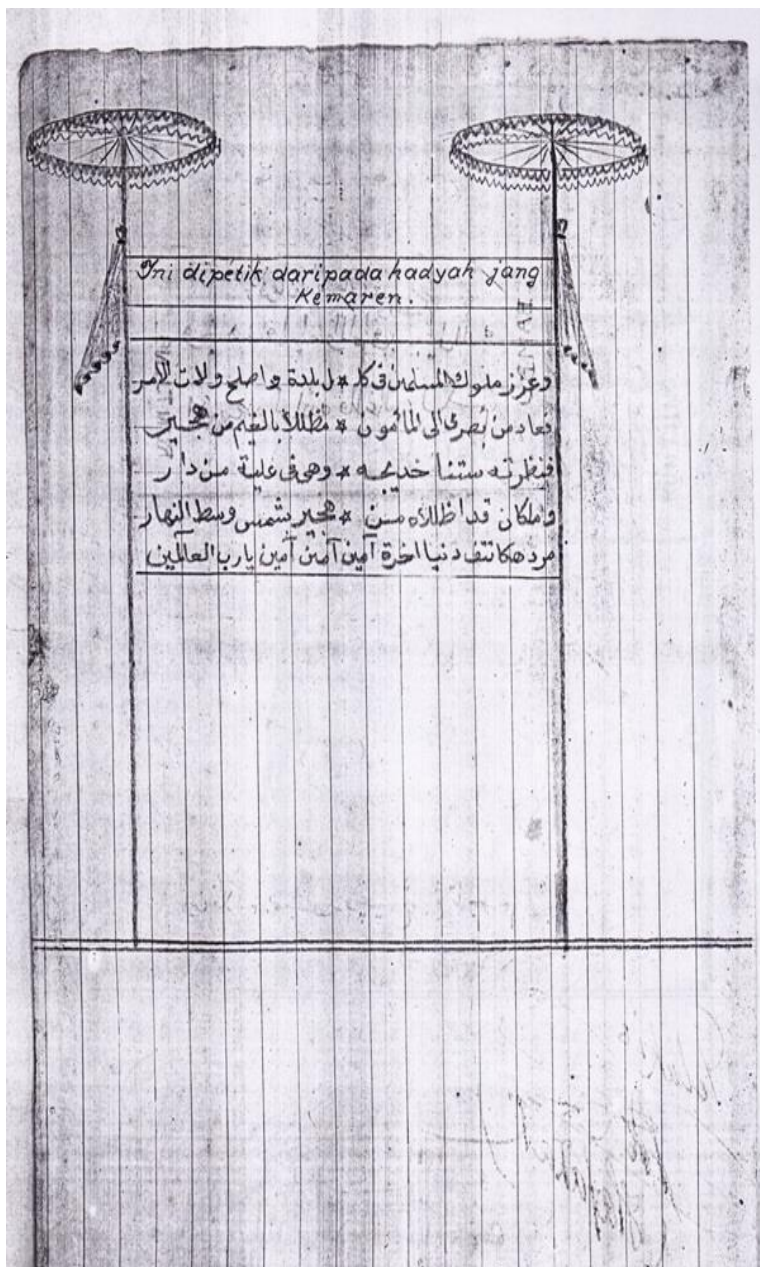 Ini dipetik daripada hadyah jang
Kemaren.
وعزز ملوك المسلمين فى كل * ل بلدة واصلح ولات الامر
فعاد من بصرى الى المأمون * مظللا بالغيم من هجير
فنظرته ستنا خديجه * وهى فى علية من دار
وملكان قد اظلاه من * هجير شمس وسط النهار
مردهكا تتف دنيا اخرة آمين آمين آمين يارب العالمين